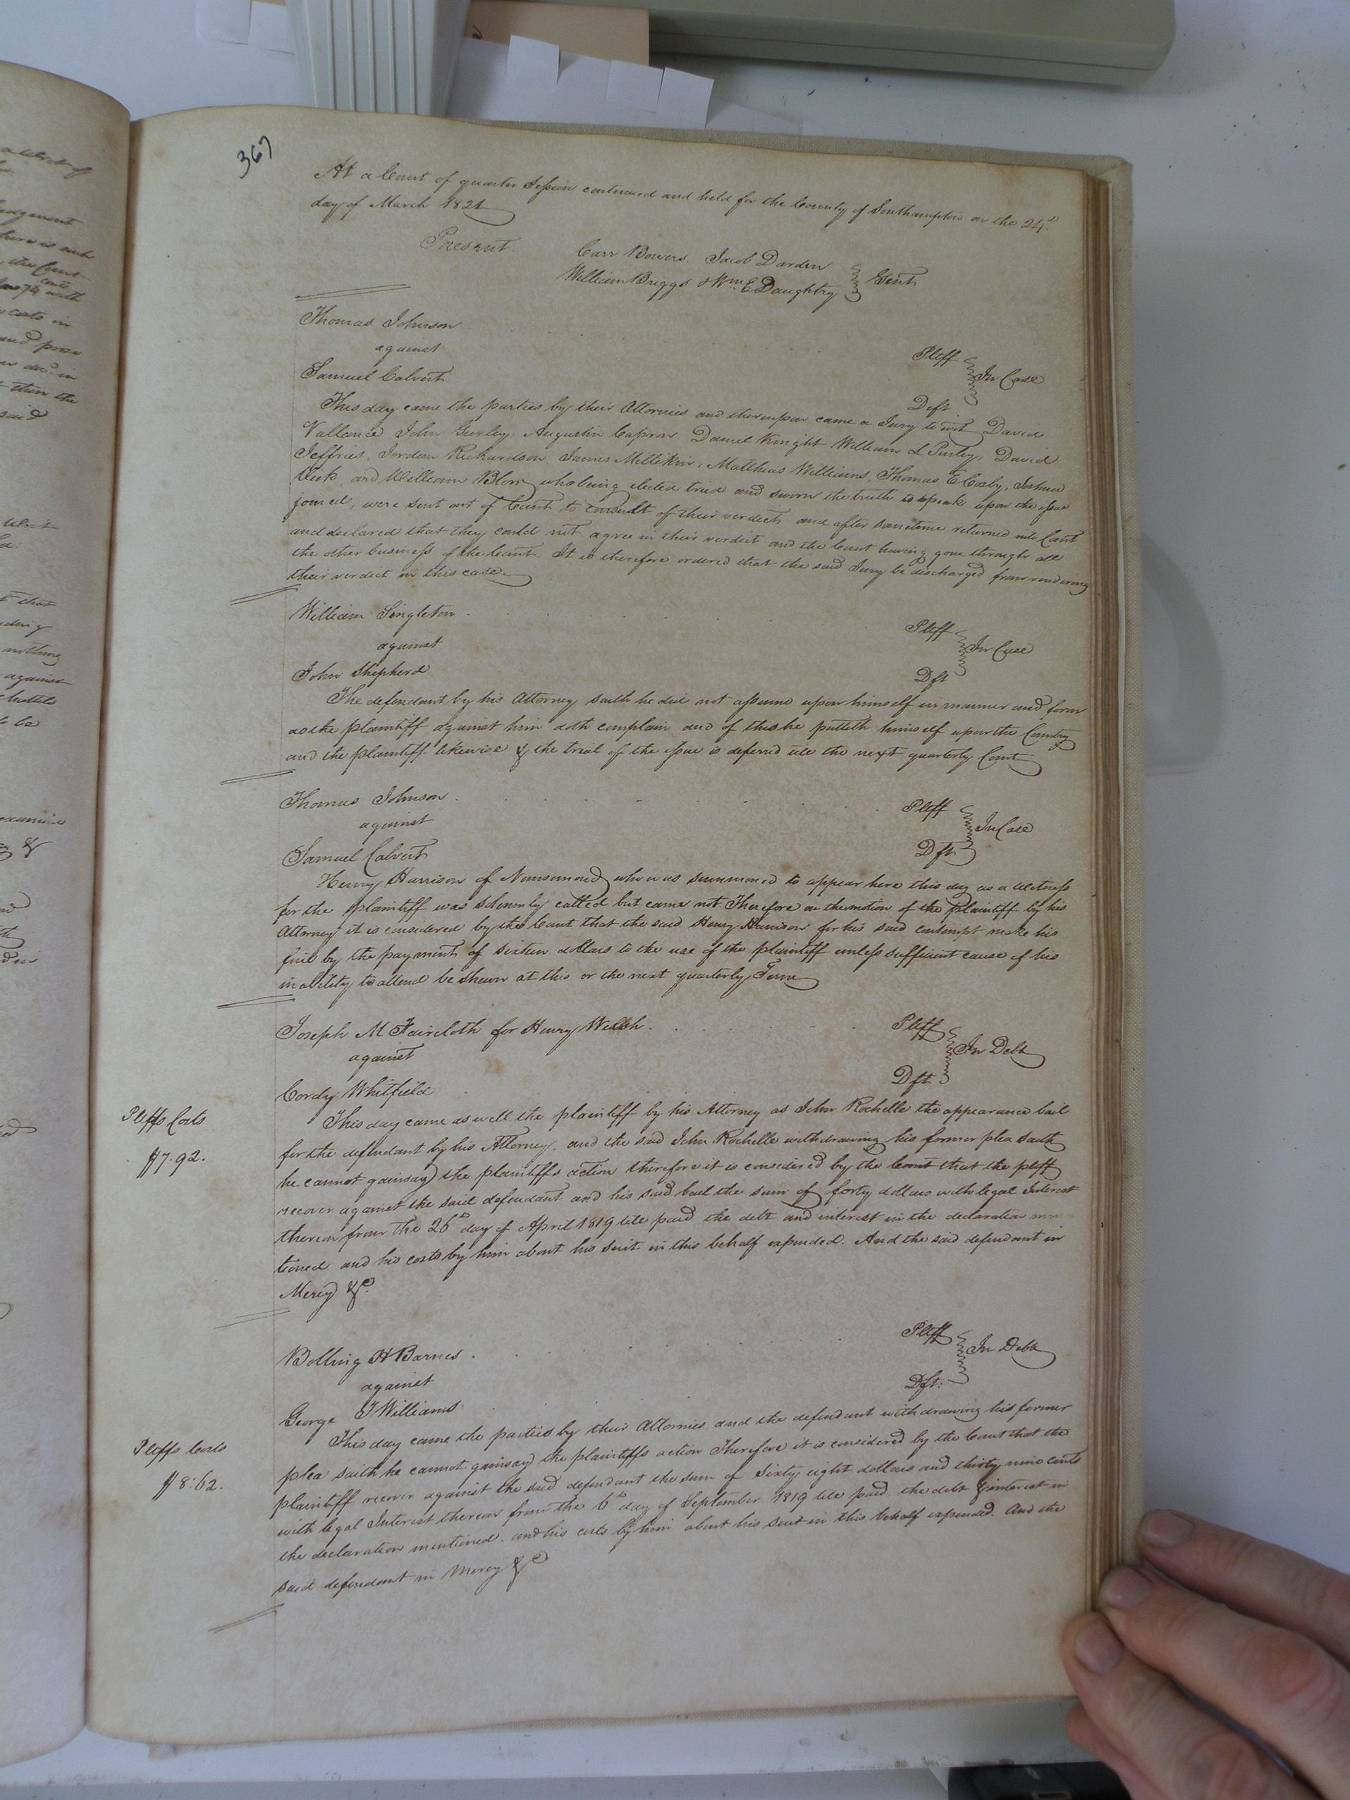 367
At a Court of quarter Session continued and held for the County of Southampton on the 24.th
day of March 1821
Present
Carr Bowers Jacob Darden
William Briggs & Wm E Daughtry Gent.
Thomas Johnson Pleff
against In Case
Samuel Calvert Deft
This day came the parties by their Attornies and thereupon came a Jury to wit David
Vallance John Gurley, Augustin Capron Daniel Knight William L Purley, David
Jeffries, Jordan Richardson James Millikin, Matthias Williams, Thomas E Caby, Joshua
and William Blow who being elected tried and sworn the truth to speak upon the issue
joined, were sent out of Court to consult of their verdict and after sometime returned into Court
and declared that they could not agree in their verdict and the Court having gone through all
the other business of the Court. It is therefore ordered that the said Jury be discharged from rendering
their verdict in this case.
William Singleton Pleff
against In Case
John Shepherd Dft
The defendant by his Attorney saith he did not assume upon himself in manner and form
as the plaintiff against him doth complain and of this he putteth himself upon the Country
and the plaintiff likewise & the trial of the issue is deferred till the next quarterly Court
Thomas Johnson Pleff
against In Case
Samuel Calvert Dft.
Henry Harrison of Nansemond who was summoned to appear here this day as a witness
for the plaintiff was solemnly called but came not Therefore on the motion of the plaintiff by his
Attorney it is considered by the Court that the said Henry Harrison for his said contempt make his
fine by the payment of sixteen dollars to the use of the plaintiff unless sufficient cause of his
inability to attend be shewn at this or the next quarterly Term
Joseph M Faircloth for Henry Welsh Pleff
against In Debt
Cordy Whitfield Dft.
This day came as well the plaintiff by his Attorney as John Rochelle the appearance bail
for the defendant by his Attorney, and the said John Rochelle withdrawing his former plea saith
he cannot gainsay the plaintiffs action therefore it is considered by the Court that the pleff
recover against the said defendant and his said bail the sum of forty dollars with legal Interest
thereon from the 26th day of April 1819 till paid the debt and interest in the declaration men
tioned and his costs by him about his suit in this behalf expended. And the said defendant in
Mercy &c.
Pleffs Costs
$7.92.
Bolling H Barnes Pleff
against In Debt
George J Williams Dft.
This day came the parties by their Attornies and the defendant withdrawing his former
plea saith he cannot gainsay the plaintiffs action Therefore it is considered by the Court that the
plaintiff recover against the said defendant the sum of Sixty eight dollars and thirty nine cents
with legal Interest thereon from the 6th day of September 1819 till paid the debt & interest in
the declaration mentioned. and his costs by him about his suit in this behalf expended. And the
said defendant in Mercy &c
Pleffs Costs
$8:62.